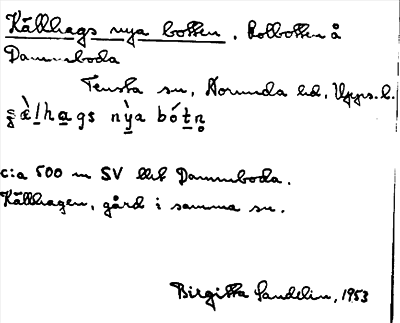 Källhags nya botten, Kolbotten å
Dammboda
Tensta sn, Norunda hd, Upps. l.
c:a 500 m SV ut Dammboda.
Källhagen, gård i samma sn.
Birgitta Sandelin, 1953